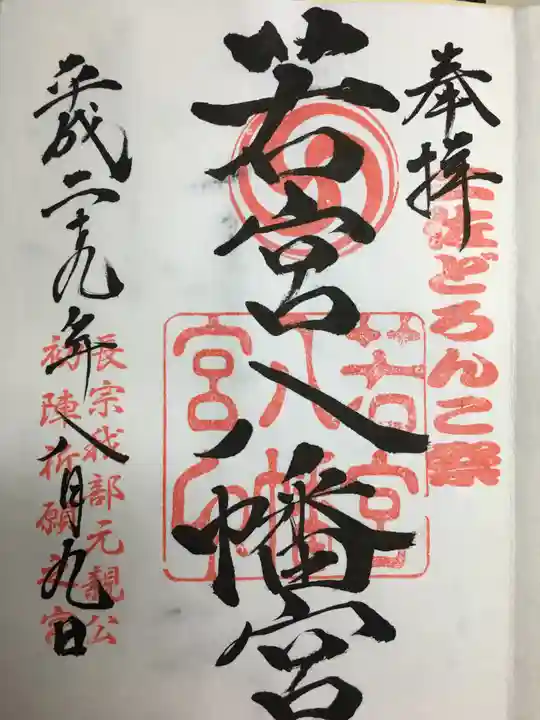 奉拝
土佐どろんこ祭
若宮八幡宮
若宮
八幡
宮印
平成二十九年八月九日
長宗我部元親公
初陣祈願の宮